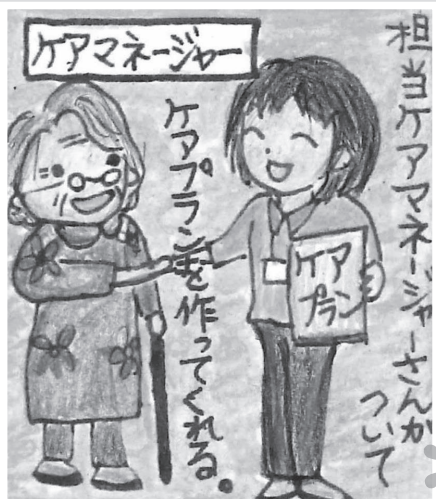 ケアマネージャー
担当ケアマネージャーさんが
ついて
ケアプランを作ってくれる。
ケア
プラン